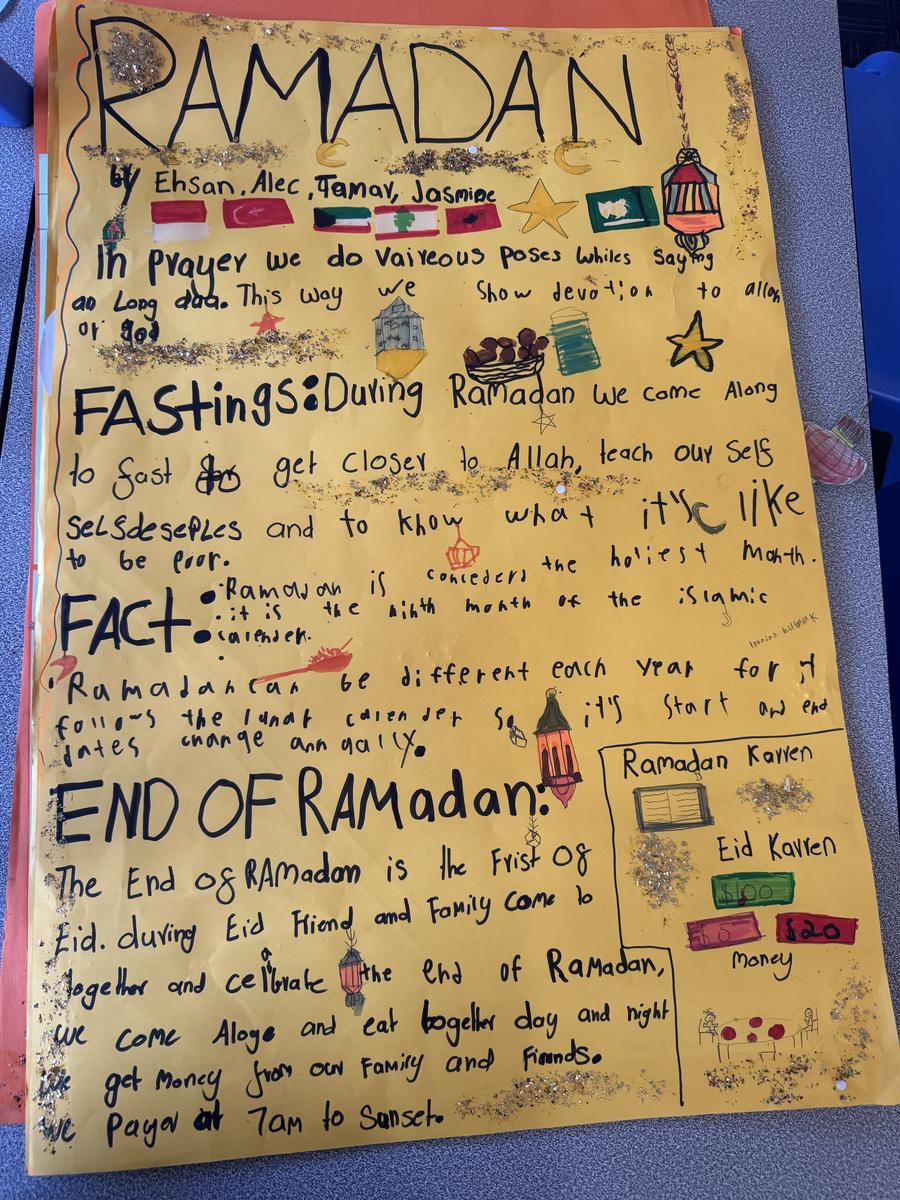 RAMADAN
by Ehsan, Alec, Tamar, Jasmine
In prayer we do vaireous poses whiles saying
an Long dua. This way we show devotion to allah
or god
FAStings: During Ramadan we come Along
to fast to get closer to Allah, teach our self
selsdeseples and to know what it's like
to be poor.
FACt: Ramadan is conceders the holiest month.
it is the ninth month of the islamic
calender.
Ramadan can be different each year for it
follows the lunar calender so it's start and end
dates change annually.
END OF RAMadan:
The End of RAMadan is the Frist of
Eid. during Eid Friend and Family come to
together and celabrate the end of Ramadan,
we come Aloge and eat together day and night
we get money from our Family and Fiennds.
we payer at 7am to Sunset.
Ramadan Karren
Eid Karren
$100
$5
$20
money